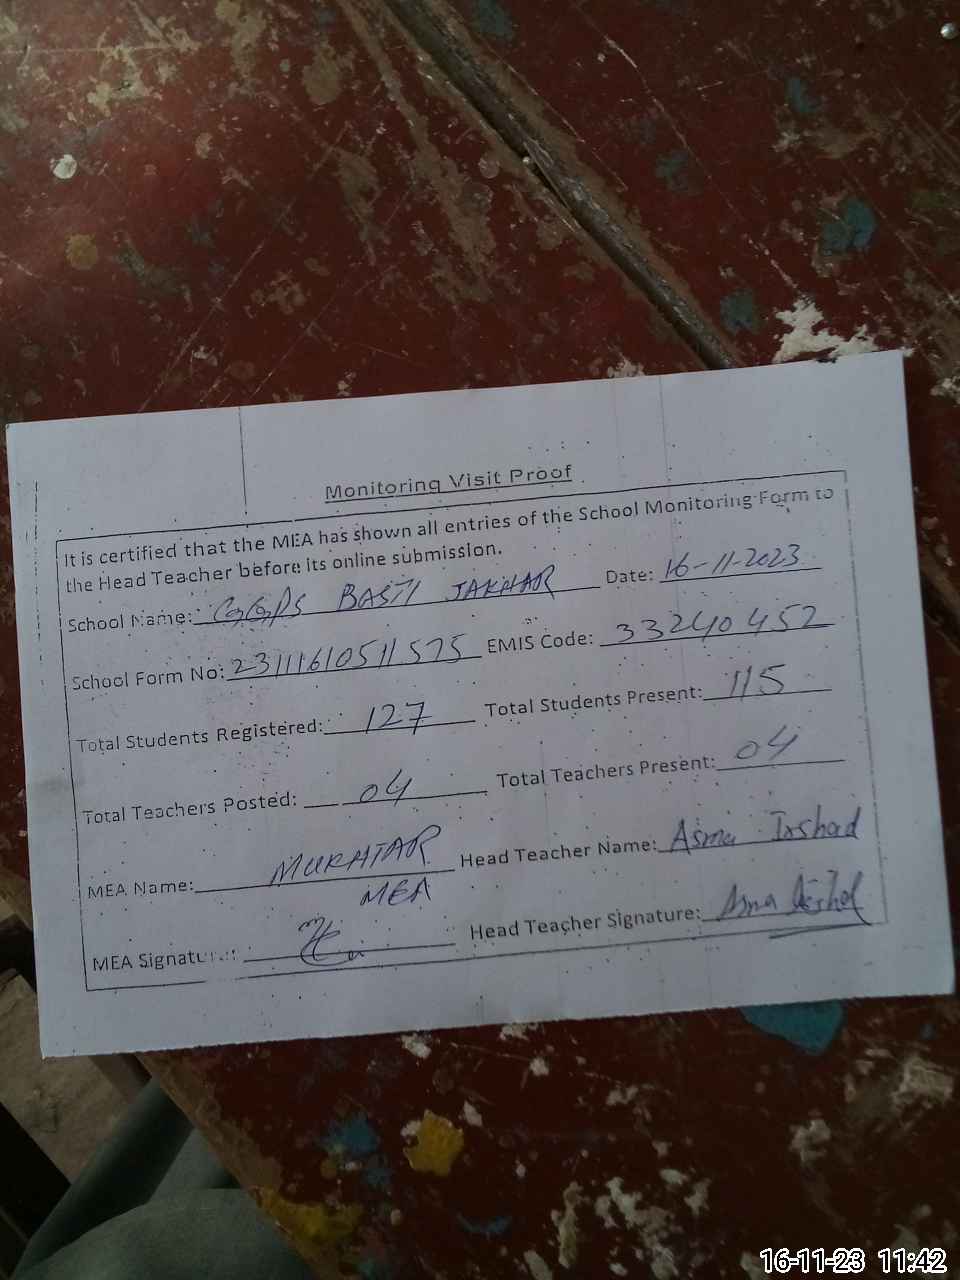 Monitoring Visit Proof
It is certified that the MEA has shown all entries of the School Monitoring Form to
the Head Teacher before its online submission.
School Name: GGPS BASTI JAKHAR Date: 16-11-2023
School Form No: 23111610511575 EMIS Code: 33240452
Total Students Registered: 127 Total Students Present: 115
Total Teachers Posted: 04 Total Teachers Present: 04
MEA Name: MUKHTAR Head Teacher Name: Asma Irshad
MEA
MEA Signature: Head Teacher Signature: Asma Irshad
16-11-23 11:42